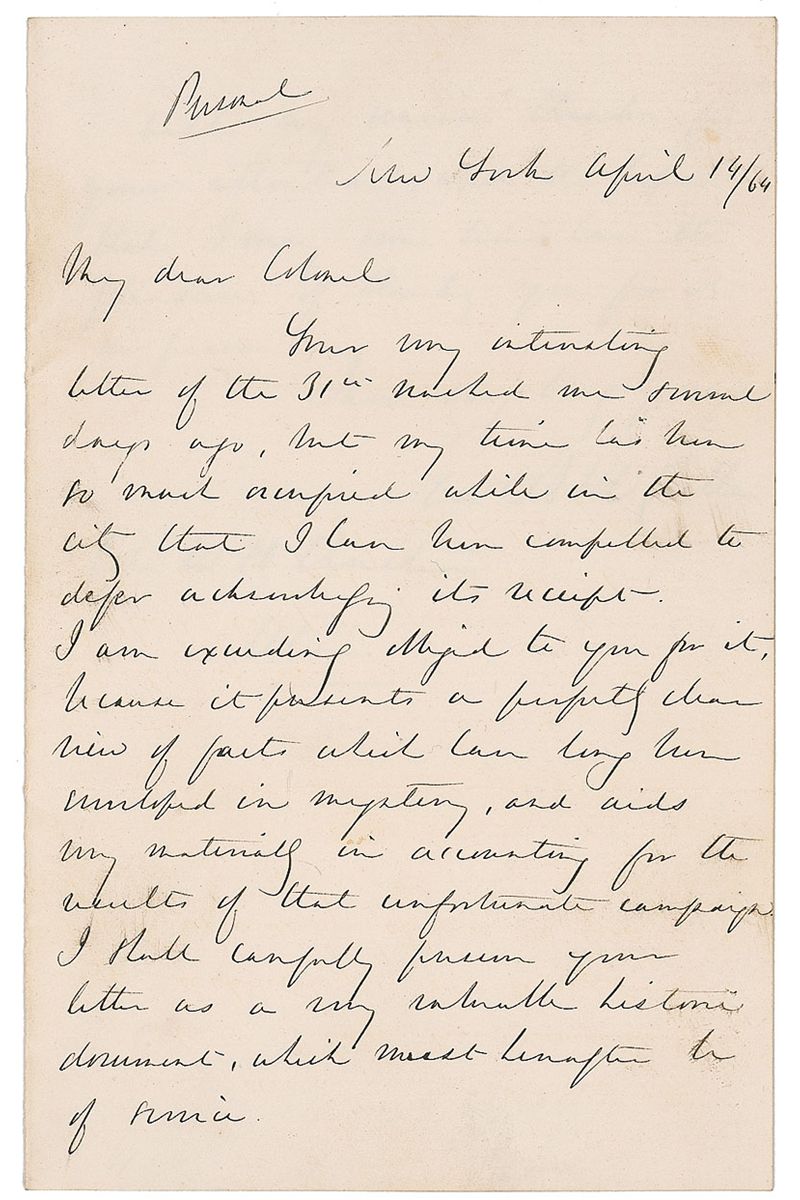 Personal
New York April 14/64
My dear Colonel
Your very interesting
letter of the 31st reached me several
days ago, but my time has been
so much occupied while in the
city that I have been compelled to
defer acknowledging its receipt.
I am exceedingly obliged to you for it,
because it presents a perfectly clear
view of facts which have long been
enveloped in mystery, and aids
very materially in accounting for the
results of that unfortunate campaign.
I shall carefully preserve your
letter as a very valuable historic
document, which must hereafter be
of service.